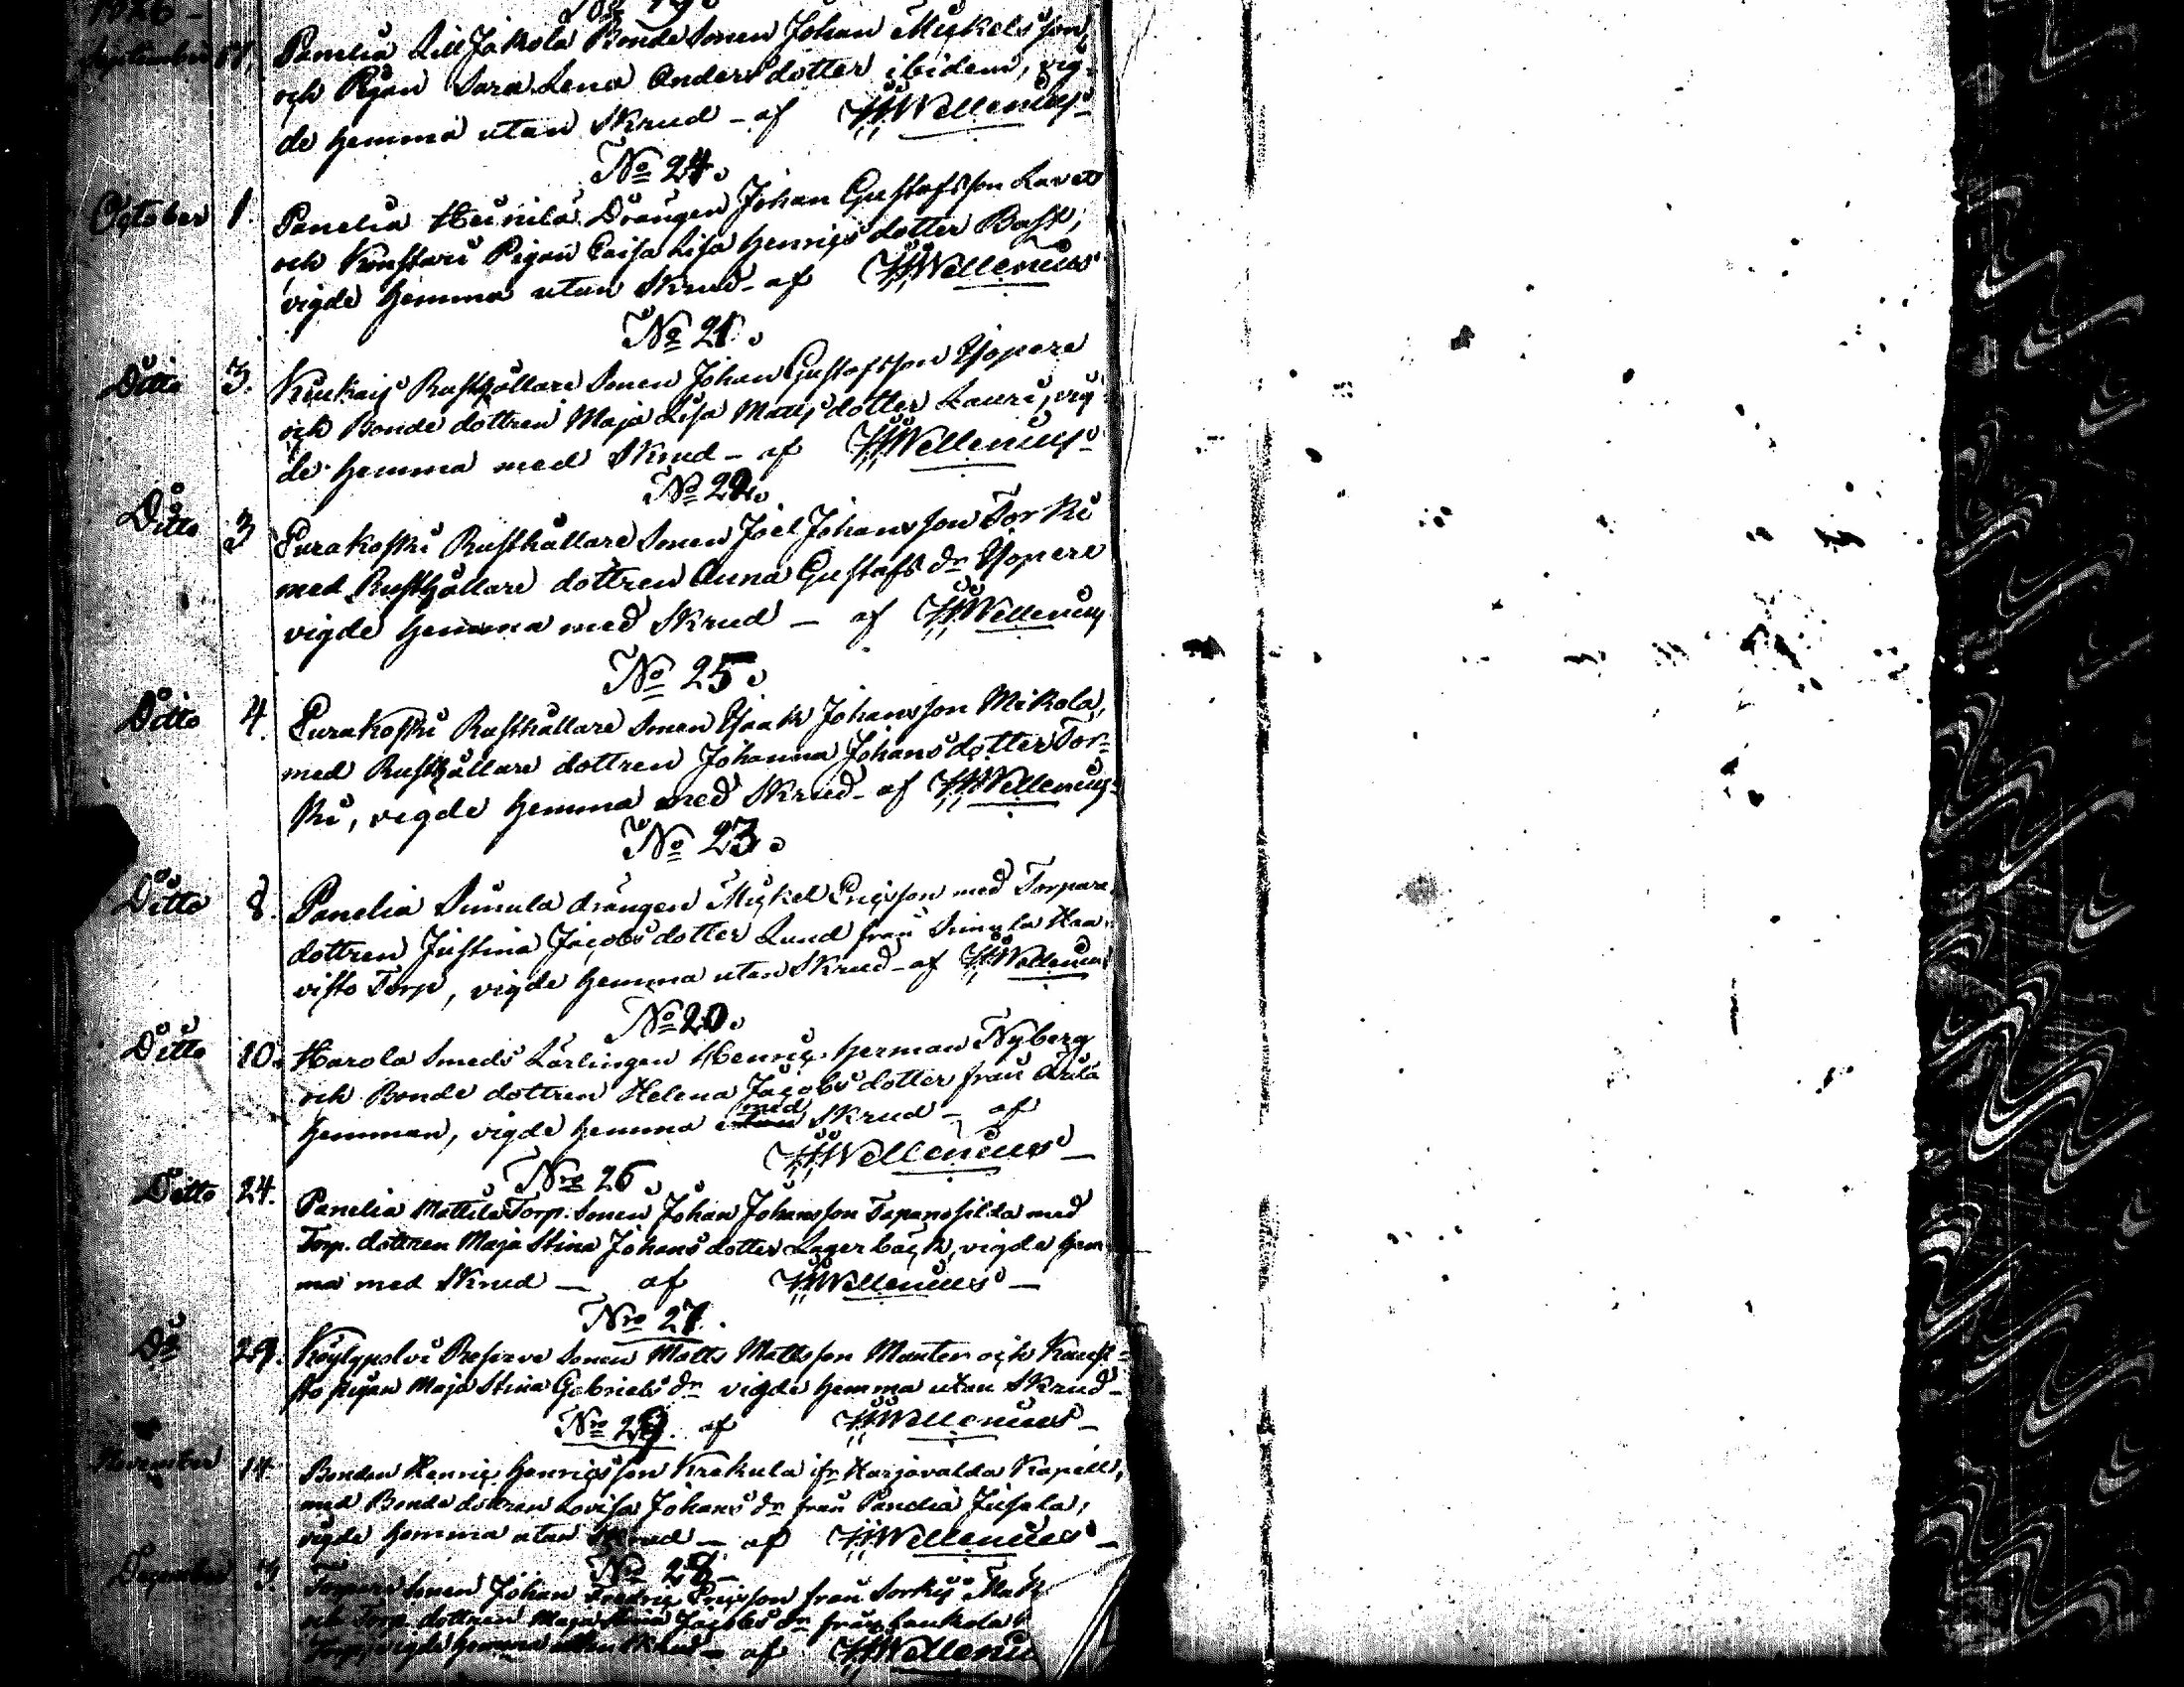 1826
No 19.
September 17. Panelia Lill Jakola Bonde Sonen Johan Mickelsson,
och Pigan Sara Lena Anders dotter ibidem, vig-
de hemma utan Skrud - af HWellenius
No 24.
October 1. Panelia Heinilä Drängen Johan Gustafsson
och Pigan Caisa Lisa Henrics dotter Bast,
vigde hemma utan Skrud - af HWellenius
No 21.
Ditto 3. Kiukais Rusthållare Sonen Johan Gustafsson Yopere
och Bonde dottren Maja Lisa Matts dotter Lauri, vig-
de hemma med Skrud - af HWellenius
No 22.
Ditto 3 Eurakoski Rusthållare Sonen Joel Johansson Torki
med Rusthållare dottren Anna Gustafs dr Yopere
vigde hemma med Skrud - af HWellenius
No 25.
Ditto 4. Eurakoski Rusthållare Sonen Isaak Johansson Mikola,
med Rusthållare dottren Johanna Johans dotter Tor-
ki, vigde hemma med Skrud - af HWellenius
No 23.
Ditto 8. Panelia Simula drängen Mickel Ericsson med Torpare
dottren Justina Jacobs dotter Lund från Simula Haa-
visto Torp, vigde hemma utan Skrud - af HWellenius
No 20.
Ditto 10. Harola Smeds Lärlingen Henric Herman Nyberg
och Bonde dottren Helena Jacobs dotter från
Hemman, vigde hemma med Skrud - af
HWellenius
Nro 26.
Ditto 24. Panelia Mattila Torp. Sonen Johan Johansson Tapanosilda med
Torp. dottren Maja Stina Johans dotter Lagerbäck, vigde hem-
ma med Skrud - af HWellenius
Nro 27.
Do 29. Köylypolvi Reserve Sonen Matts Mattsson Manter och
Pigan Maja Stina Gabriels dr vigde hemma utan Skrud -
Nro 29. af HWellenius
November 14 Bonden Henric Henricsson Krekula ifr Harjavalda Kapell,
med Bonde dottren Lovisa Johans dr från Panelia Jusala,
vigde hemma utan Skrud - af HWellenius
No 28
December Torpare Sonen Johan Fredric Ericsson från
och Torp. dottren Maja Jacobs dr från
Torp, vigde hemma utan Skrud - af HWelleniu